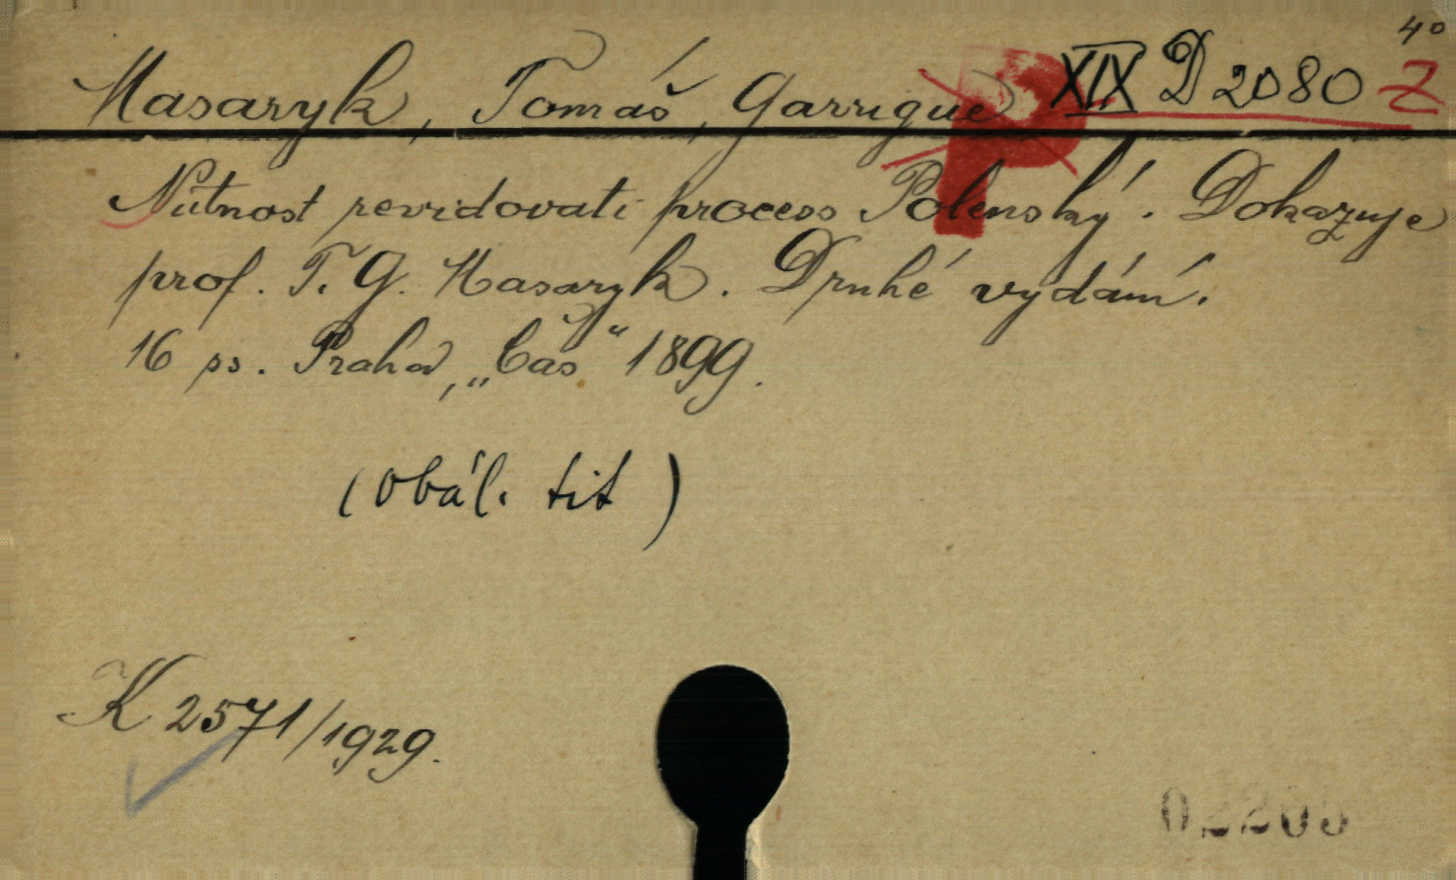 4°
Masaryk, Tomáš, Garrigue XIX D 2080 Z
Nutnost revidovati process Polenský. Dokazuje
prof. T. G. Masaryk. Druhé vydání.
16 ss. Praha, „Čas“ 1899.
(obál. tit)
K 2571/1929.